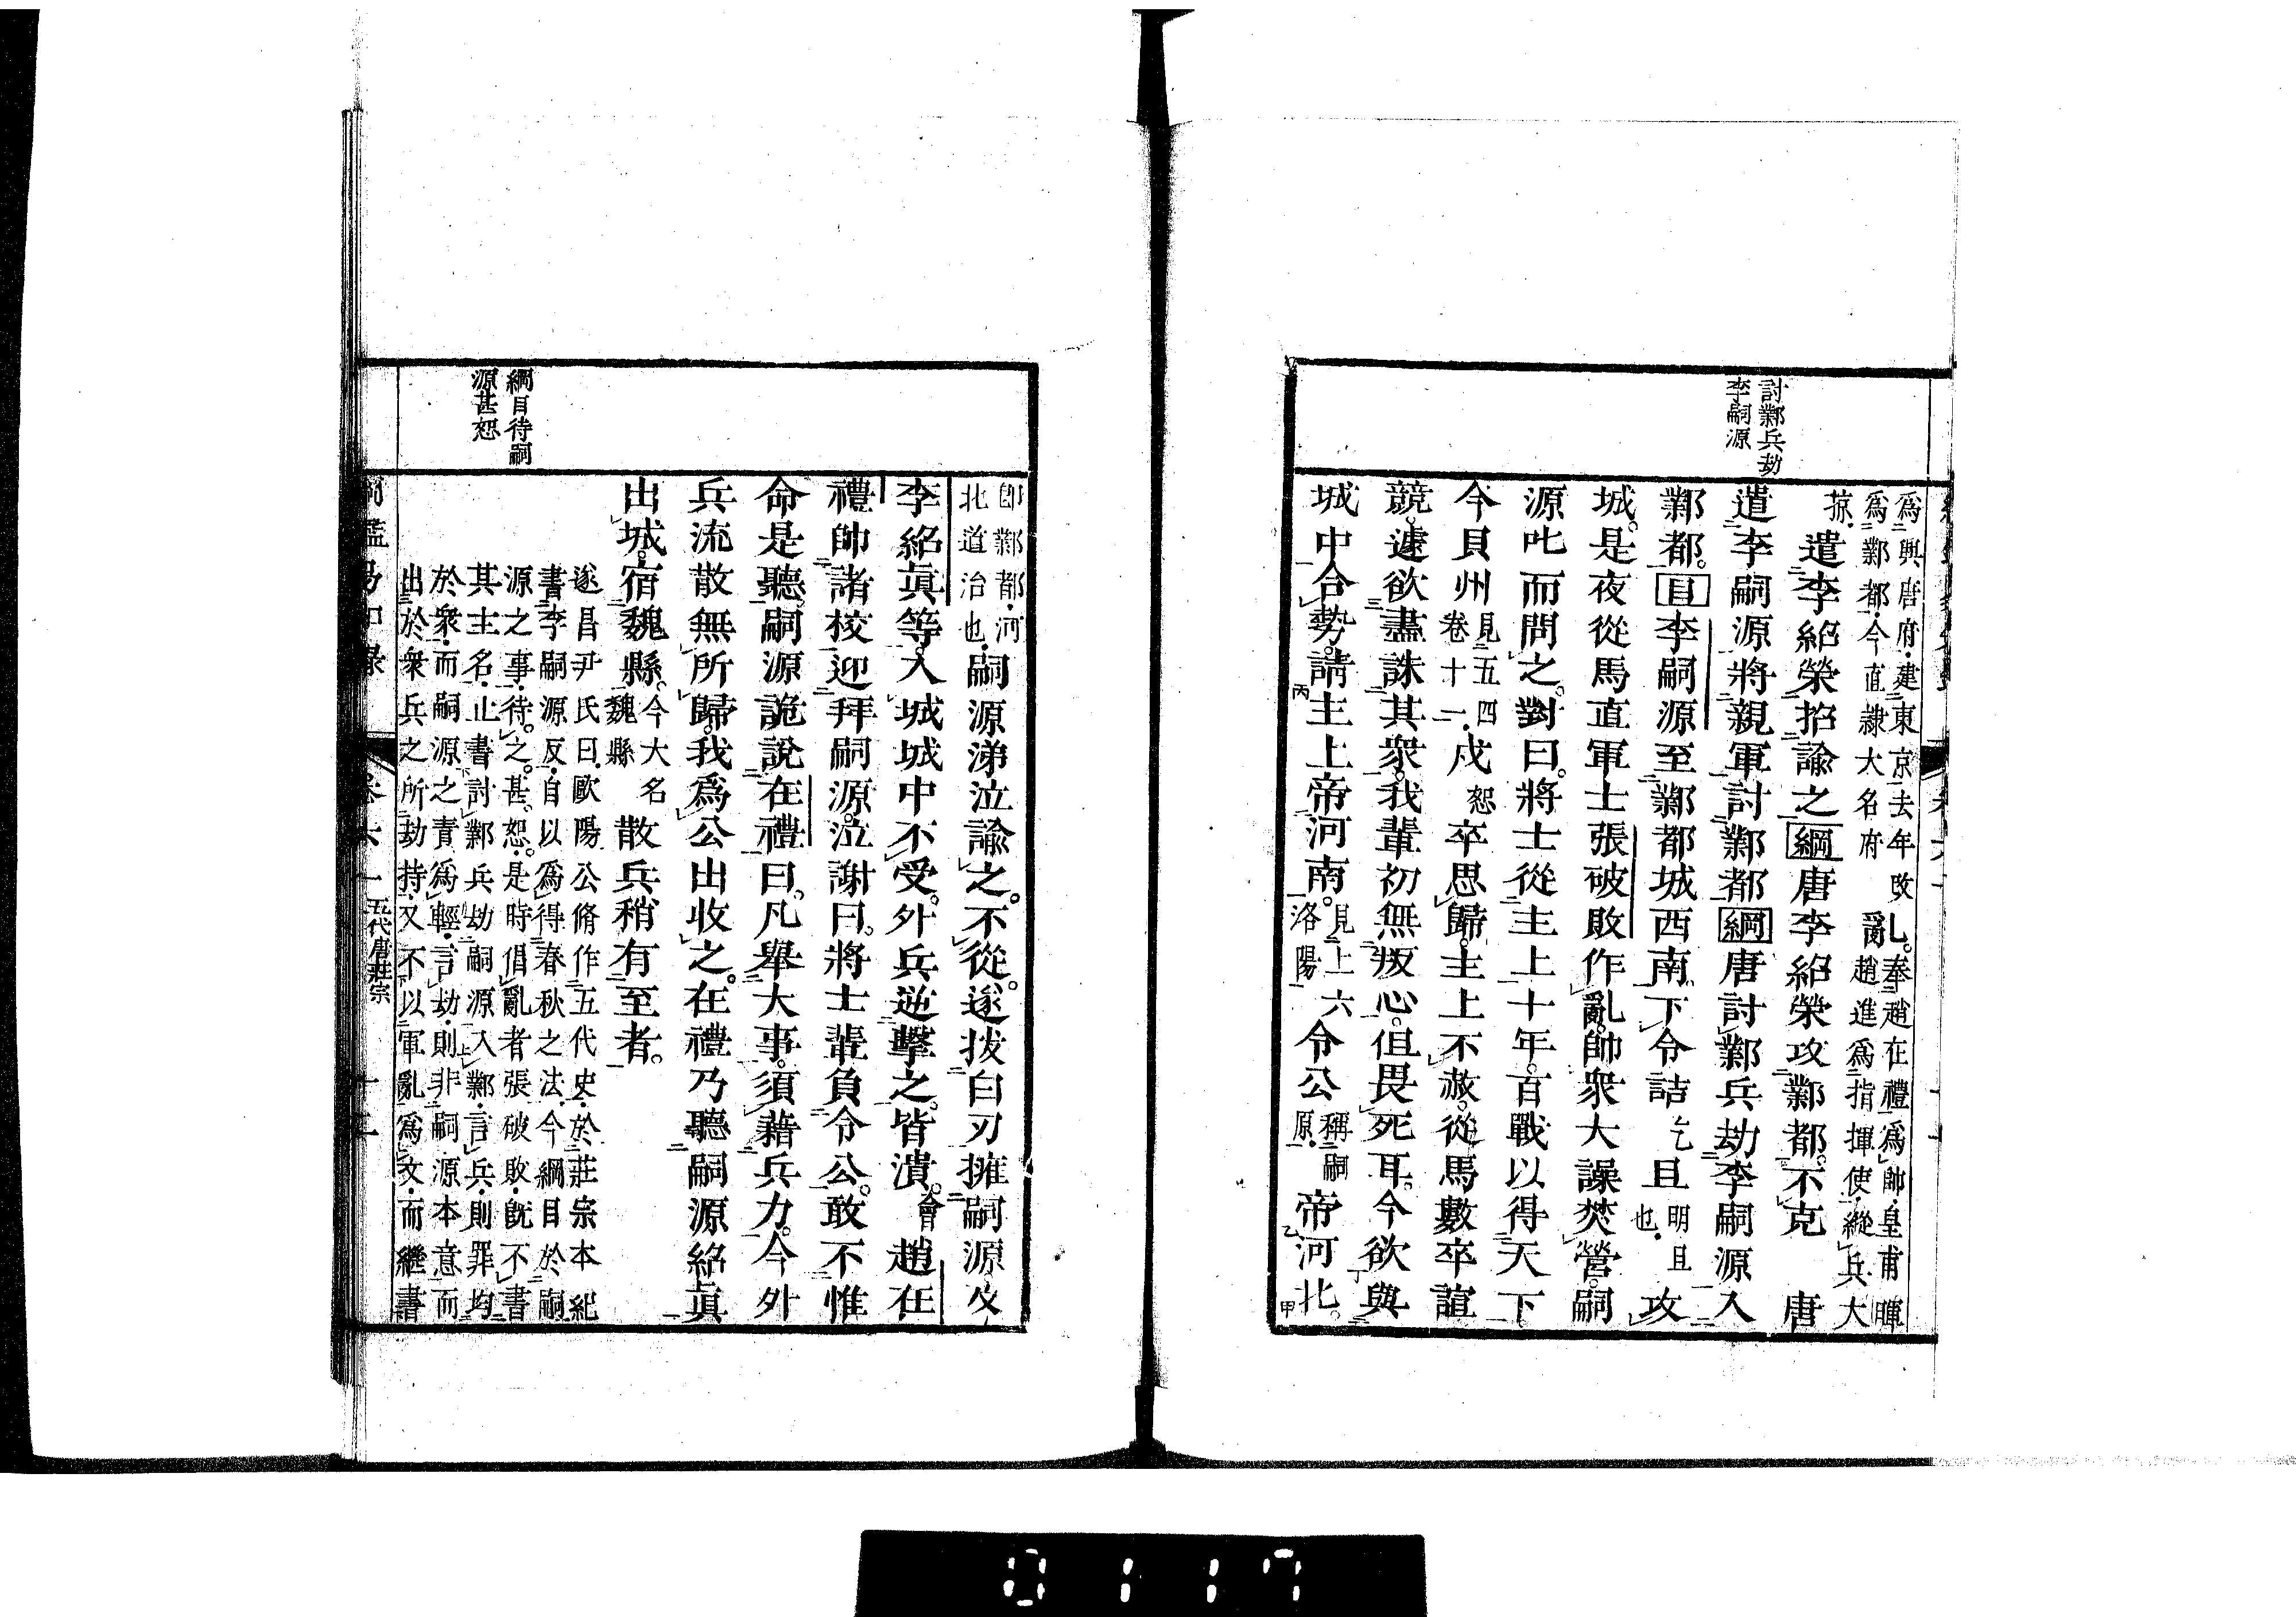 討鄴兵劫
李嗣源
爲興唐府建東京去年改
爲鄴都今直隷大名府
亂奉趙在禮爲帥皇甫暉
趙進爲指揮使縱兵大
掠
遣李紹榮招諭之綱唐李紹榮攻鄴都不克　唐
遣李嗣源將親軍討鄴都綱唐討鄴兵劫李嗣源入
鄴都目李嗣源至鄴都城西南下令詰乞且明旦也攻
城是夜從馬直軍士張破敗作亂帥衆大譟焚營嗣
源叱而問之對曰將士從主上十年百戰以得天下
今貝州見五四卷十一戍恕卒思歸主上不赦從馬數卒諠
競遽欲盡誅其衆我輩初無叛心但畏死耳今欲與
城中合勢請主上帝河南見上六洛陽令公稱嗣原帝河北
綱目待嗣
源甚恕
即鄴都河
北道治也
嗣源涕泣諭之不從遂拔白刃擁嗣源及
李紹眞等入城城中不受外兵逆擊之皆潰會趙在
禮帥諸校迎拜嗣源泣謝曰將士輩負令公敢不惟
命是聽嗣源詭說在禮曰凡舉大事須藉兵力今外
兵流散無所歸我爲公出收之在禮乃聽嗣源紹眞
出城宿魏縣今大名魏縣散兵稍有至者
遂昌尹氏曰歐陽公脩作五代史於莊宗本紀
書李嗣源反自以爲得春秋之法今綱目於嗣
源之事待之甚恕是時倡亂者張破敗既不書
其主名止書討鄴兵劫嗣源入鄴言兵則罪均
於衆而嗣源之責爲輕言劫則非嗣源本意而
出於衆兵之所劫持又不以軍亂爲文而繼書
五代唐莊宗
0117